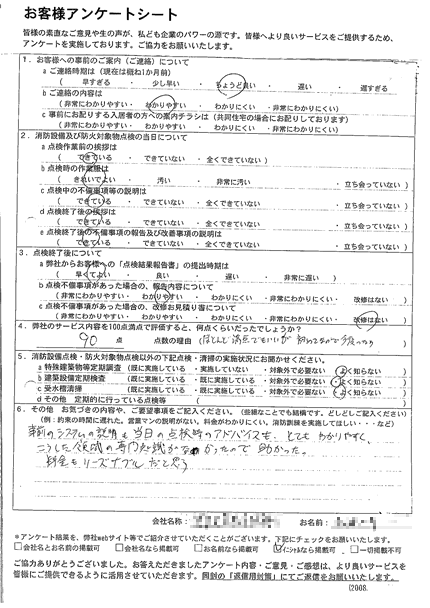 お客様アンケートシート
皆様の素直なご意見や生の声が、私ども企業のパワーの源です。皆様へより良いサービスをご提供するため、
アンケートを実施しております。ご協力をお願いいたします。
1. お客様への事前のご案内（ご連絡）について
a ご連絡時期は（現在は概ね1か月前）
（ 早すぎる ・ 少し早い ・ ちょうど良い ・ 遅い ・ 遅すぎる ）
b ご連絡の内容は
（非常にわかりやすい・ わかりやすい ・ わかりにくい ・非常にわかりにくい）
c 事前にお配りする入居者の方への案内チラシは（共同住宅の場合にお配りしております）
（非常にわかりやすい・ わかりやすい ・ わかりにくい ・非常にわかりにくい）
2. 消防設備及び防火対象物点検の当日について
a 点検作業前の挨拶は
（ できている ・ できていない ・全くできていない ）
b 点検時の作業服は
（ きれいでよい ・ 汚い ・ 非常に汚い ・立ち会っていない ）
c 点検中の不備事項等の説明は
（ できている ・ できていない ・全くできていない ・立ち会っていない ）
d 点検終了後の挨拶は
（ できている ・ できていない ・全くできていない ・立ち会っていない ）
e 点検終了後の不備事項の報告及び改善事項の説明は
（ できている ・ できていない ・全くできていない ・立ち会っていない ）
3. 点検終了後について
a 弊社からお客様への「点検結果報告書」の提出時期は
（ 早くてよい ・ 良い ・ 遅い ・ 非常に遅い ）
b 点検不備事項があった場合の、報告内容について
（非常にわかりやすい・ わかりやすい ・ わかりにくい ・非常にわかりにくい・ 改修はない ）
c 点検不備事項があった場合の、改修お見積り書について
（非常にわかりやすい・ わかりやすい ・ わかりにくい ・非常にわかりにくい・ 改修はない ）
4. 弊社のサービス内容を100点満点で評価すると、何点くらいだったでしょうか？
90 点 点数の理由（ ほとんど満点でもいいが
5. 消防設備点検・防火対象物点検以外の下記点検・清掃の実施状況にお聞かせください。
a 特殊建築物等定期調査（既に実施している ・実施していない ・対象外で必要ない ・よく知らない ）
b 建築設備定期検査 （既に実施している ・実施していない ・対象外で必要ない ・よく知らない ）
c 受水槽清掃 （既に実施している ・実施していない ・対象外で必要ない ・よく知らない ）
d その他 定期的に行っている点検等 （ ）
6. その他 お気づきの内容や、ご要望事項をご記入ください。（些細なことでも結構です。どしどしご記入ください）
（例：約束の時間に遅れた。営業マンの説明がない。料金がわかりにくい。消防訓練を実施してほしい・・・など）
事前のシステムの説明も当日の点検時のアドバイスも、とてもわかりやすく、
こうした領域の専門知識がなかったので助かった。
料金もリーズナブルだと思う
会社名称： お名前：
＊アンケート結果を、弊社webサイト等でご紹介させていただくことがございます。下記にチェックをお願いいたします。
□会社名とお名前の掲載可 □会社名なら掲載可 □お名前なら掲載可 □イニシャルなら掲載可 □一切掲載不可
ご協力ありがとうございました。お答えいただきましたアンケート内容・ご意見・ご感想は、より良いサービスを
皆様にご提供できるように活用させていただきます。同封の「返信用封筒」にてご返信をお願いいたします。
(2008.